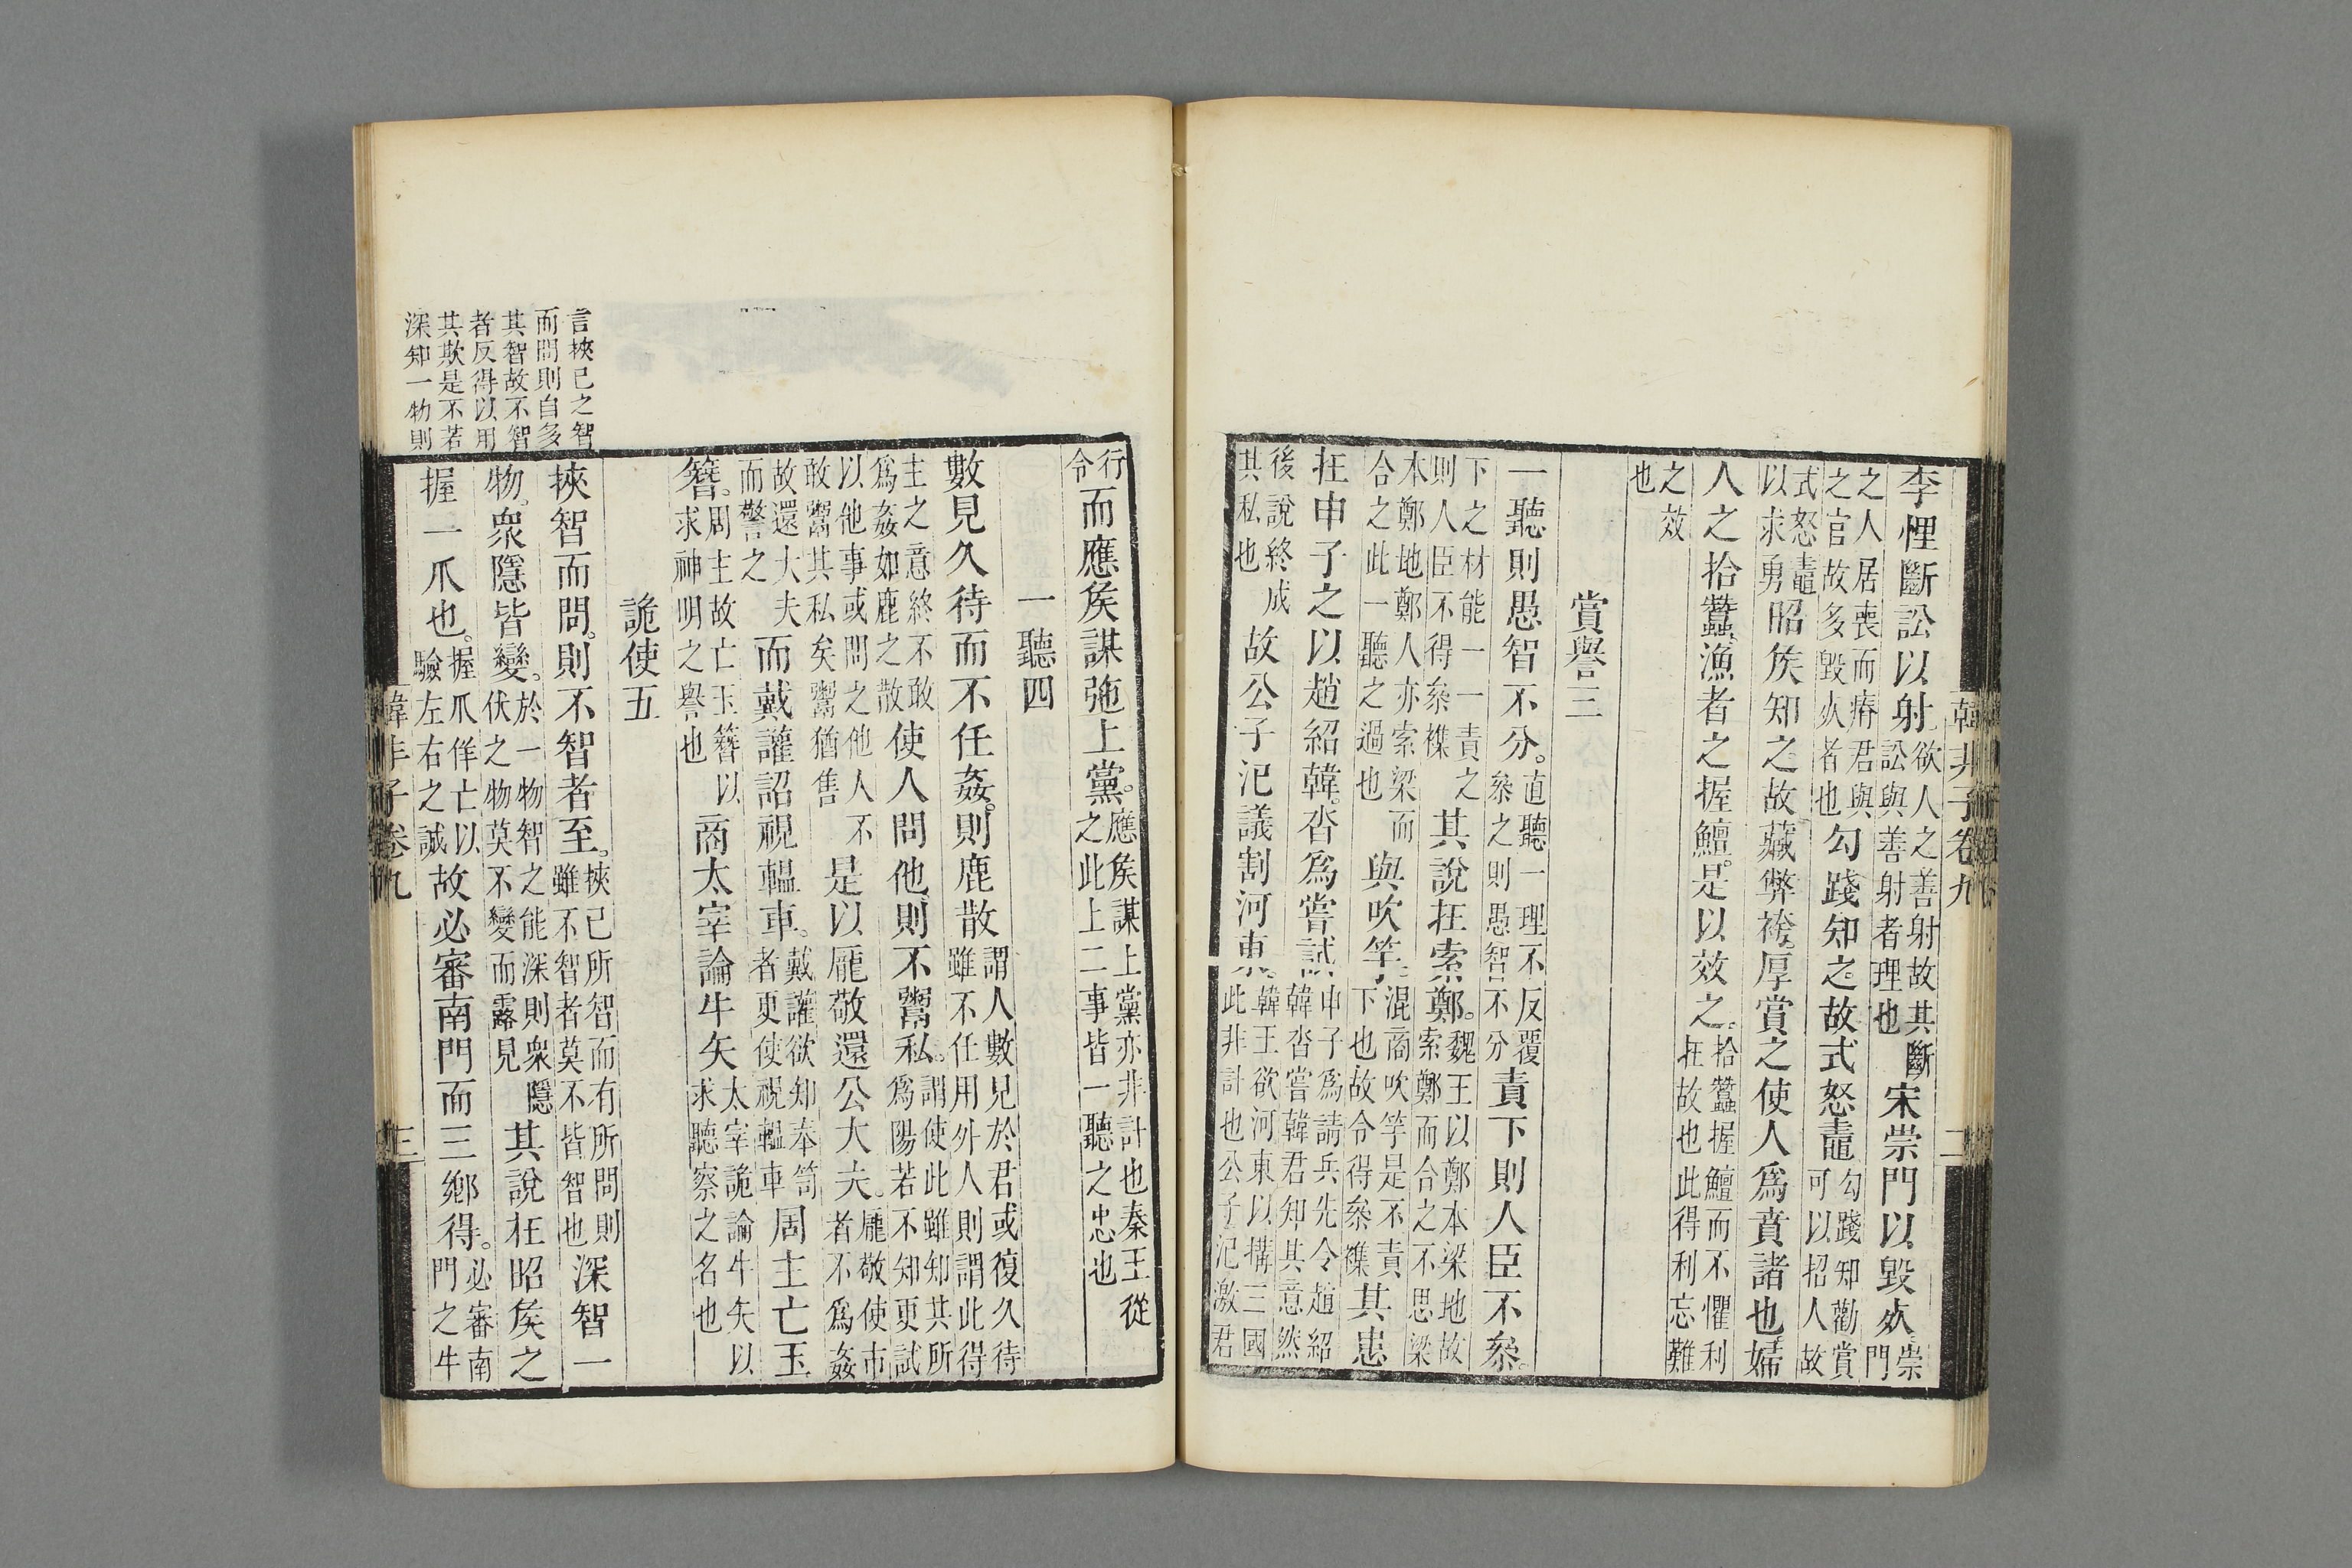 韓非子卷九
二
李悝斷訟以射欲人之善射故其斷訟與善射者理也宋崇門以毀死崇門
之人居喪而瘠君與之官故多毀死者也勾踐知之故式怒鼃勾踐知勸賞可以招人故
式怒鼃以求勇昭矦知之故藏弊袴厚賞之使人爲賁諸也婦
人之拾蠶漁者之握鱣是以效之拾蠶握鱣而不懼利在故也此得利忘難
之效也
賞譽三
一聽則愚智不分直聽一理不反覆參之則愚智不分責下則人臣不參
下之材能一一責之則人臣不得參襍其說在索鄭魏王以鄭本梁地故索鄭而合之不思梁
本鄭地鄭人亦索梁而合之此一聽之過也與吹竽混商吹竽是不責下也故令得參襍其患
在申子之以趙紹韓沓爲嘗試申子爲請兵先令趙紹韓沓嘗韓君知其意然
後說終成其私也故公子汜議割河東韓王欲河東以搆三國此非計也公子汜激君
行令而應矦謀弛上黨應矦謀上黨亦非計也秦王從之此上二事皆一聽之忠也
一聽四
數見久待而不任姦則鹿散謂人數見於君或復久待雖不任用外人則謂此得
主之意終不敢爲姦如鹿之散使人問他則不鬻私謂使此雖知其所爲陽若不知更試
以他事或問之他人不敢鬻其私矣鬻猶售是以龐敬還公大夫龐敬使市者不爲姦
故還大夫而警之而戴讙詔視轀車戴讙欲知奉笥者更使視轀車周主亡玉
簪周主故亡玉簪以求神明之譽也商太宰論牛矢太宰詭論牛矢以求聽察之名也
詭使五
挾智而問則不智者至挾己所智而有所問則雖不智者莫不皆智也深智一
物衆隱皆變於一物智之能深則衆隱伏之物莫不變而露見其說在昭矦之
握一爪也握爪佯亡以驗左右之誠故必審南門而三鄉得必審南門之牛
韓非子卷九
三
言挾己之智
而問則自多
其智故不智
者反得以用
其欺是不若
深知一物則